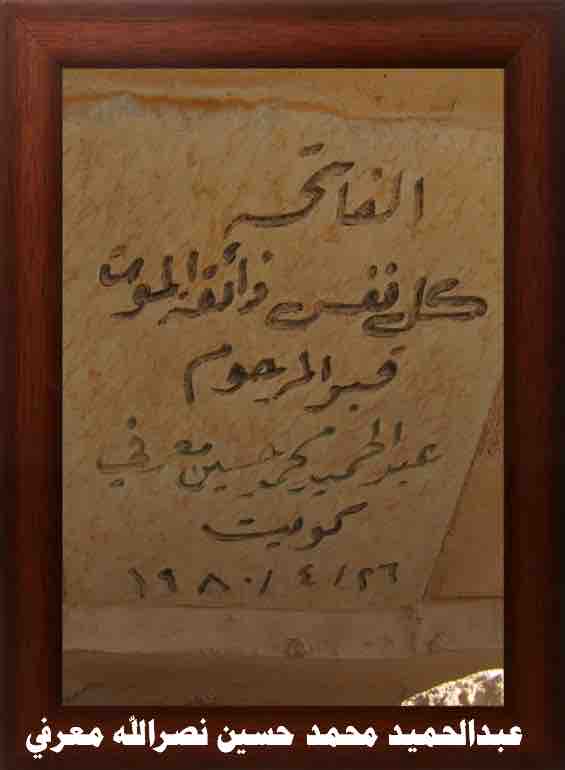 الفاتحه
كل نفس ذائقة الموت
قبر المرحوم
عبد الحميد محمد حسين معرفي
كويت
٢٦/٤/١٩٨٠
عبدالحميد محمد حسين نصرالله معرفي